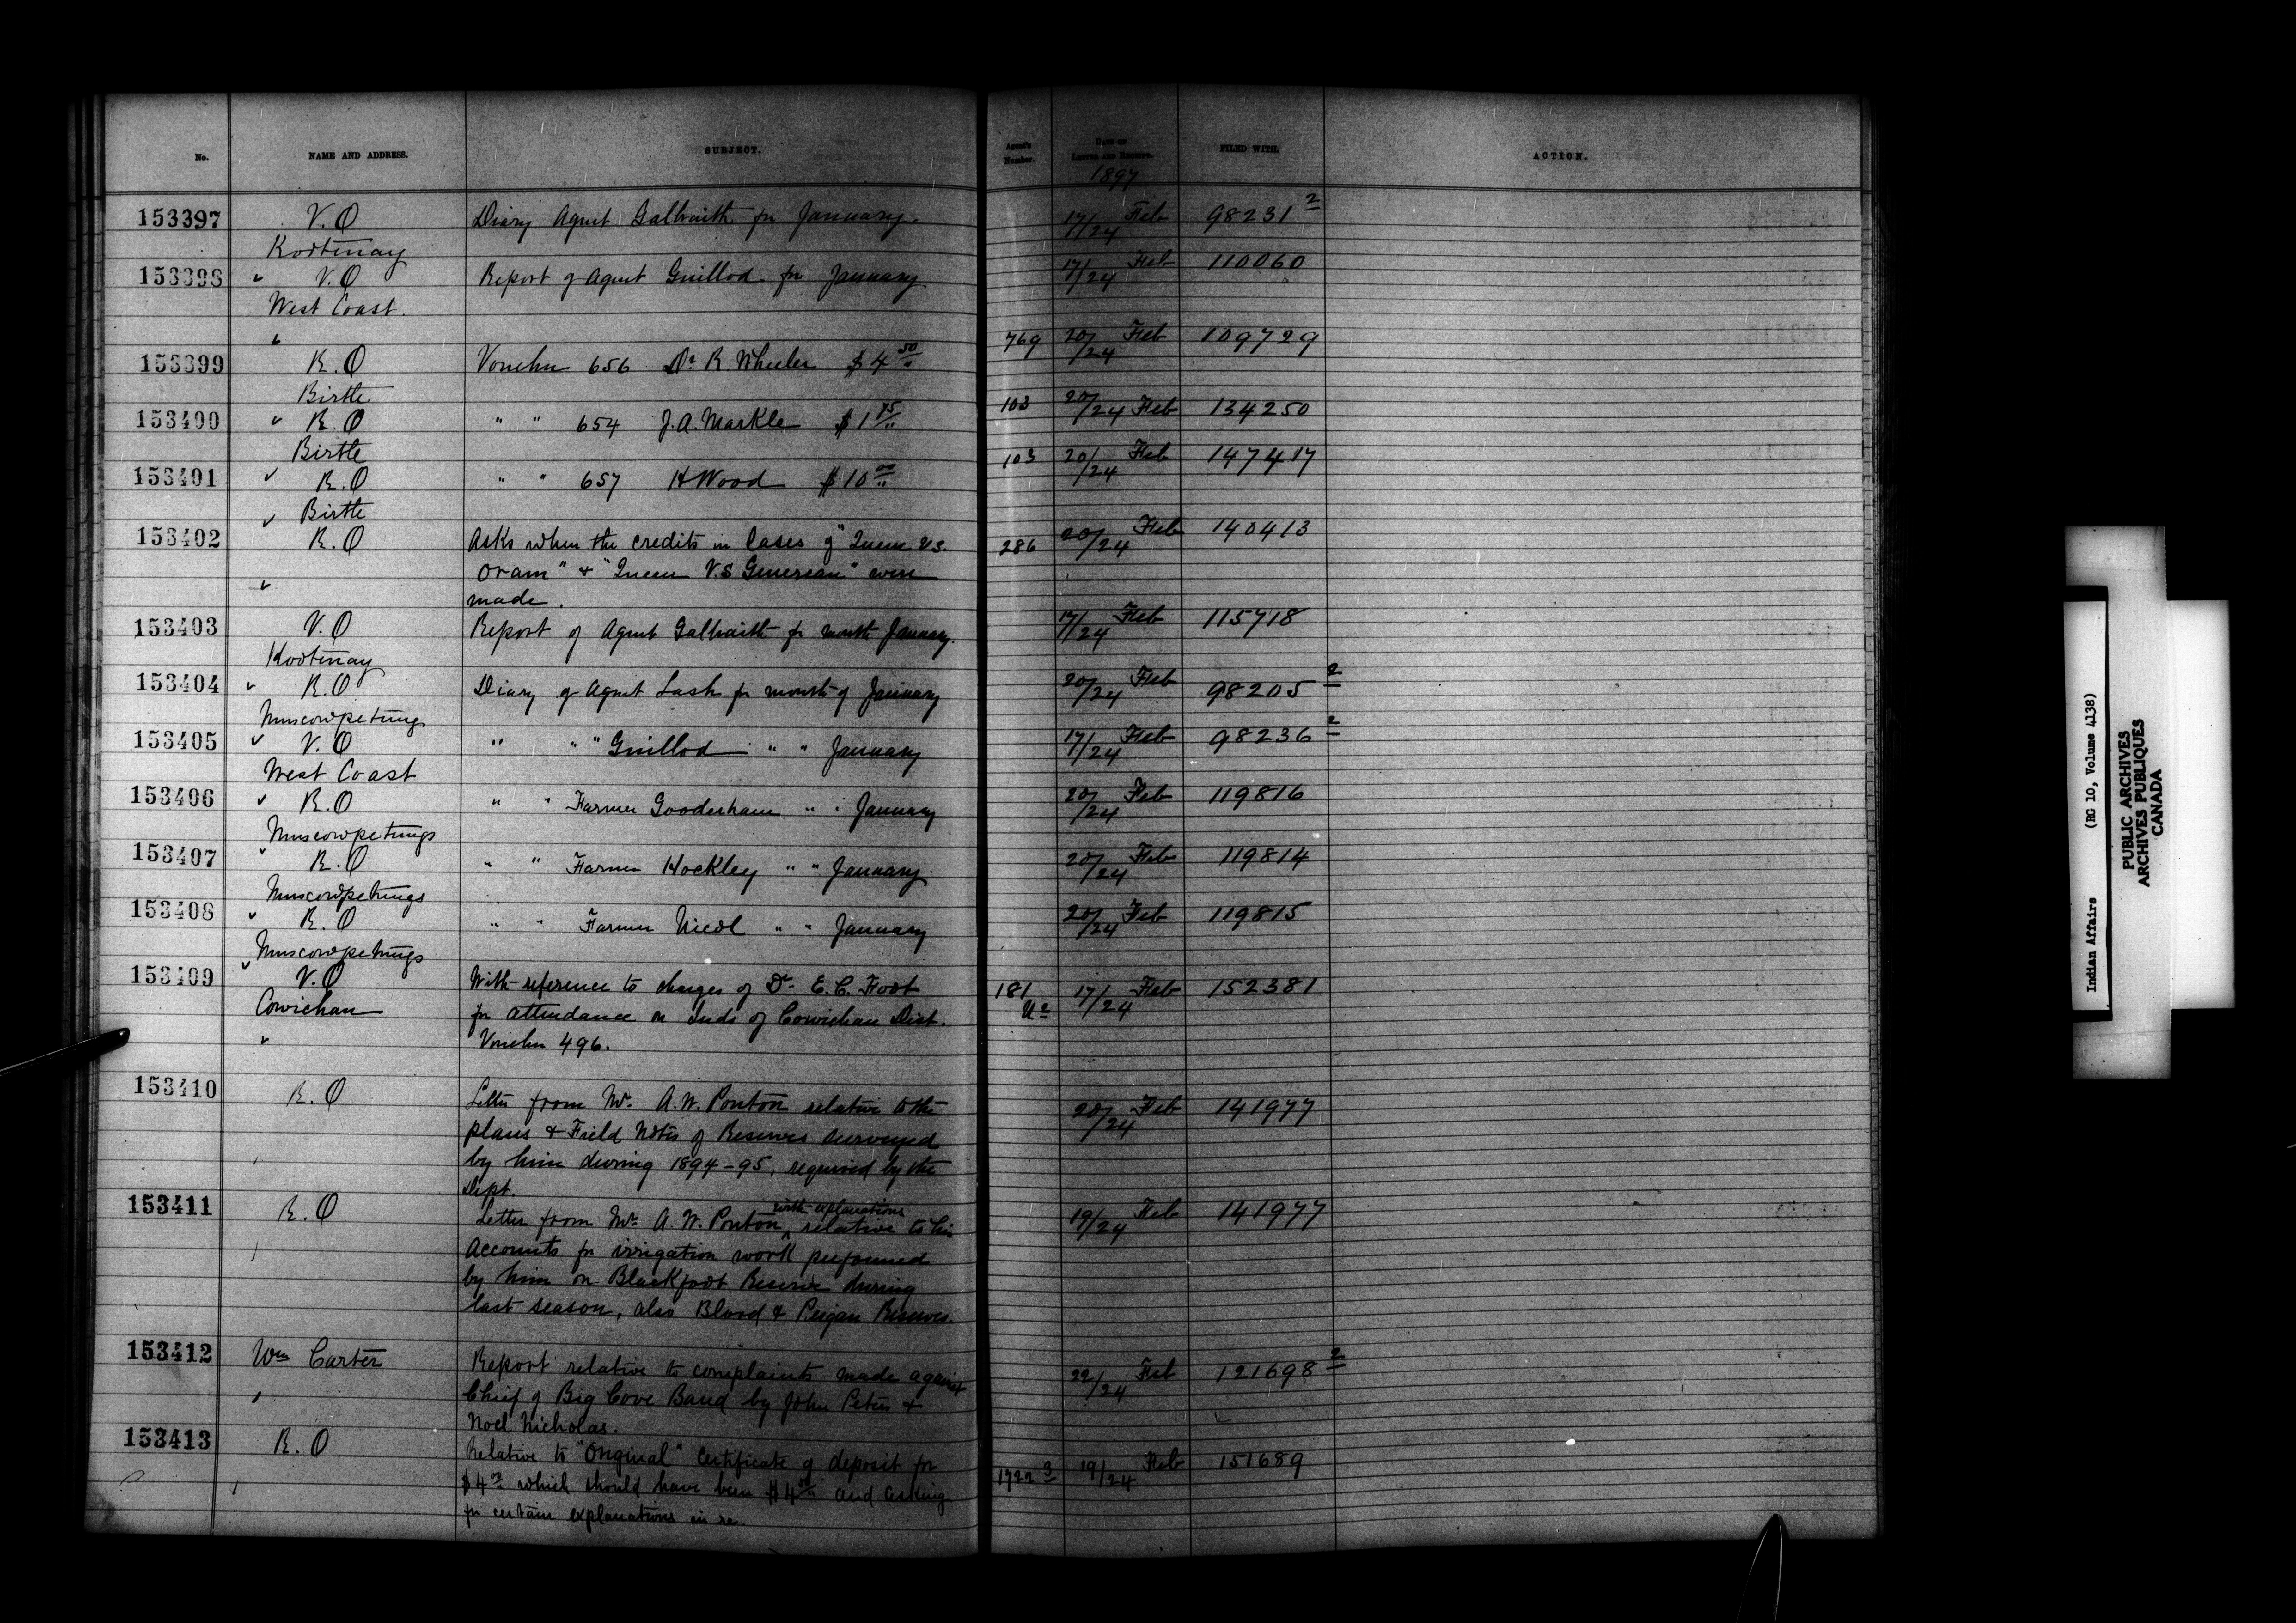 No. NAME AND ADDRESS. SUBJECT. Agent's Number. DATE OF LETTER AND RECEIPT. FILED WITH. ACTION.
1897
153397 V.O Diary Agent Galbraith for January. 17/24 Feb 98231 2
Kootenay
153398 V.O Report of Agent Guillod for January 17/24 Feb 110060
West Coast.
153399 R.O Voucher 656 Dr R Wheeler $4 50 769 20/24 Feb 109729
Birtle
153400 R.O " " 654 J.A. Markle $1 103 20/24 Feb 134250
Birtle
153401 R.O " " 657 H Wood $10 00 103 20/24 Feb 147417
Birtle
153402 R.O Asks when the credits in Cases of "Queen vs. 286 20/24 Feb 140413
Oram" & "Queen V.S Genereau" were
made.
153403 V.O Report of Agent Galbraith for month January. 17/24 Feb 115718
Kootenay
153404 R.O Diary of Agent Lash for month of January 20/24 Feb 98205 2
Muscowpetungs
153405 V.O " " " Guillod " " January 17/24 Feb 98236 2
West Coast
153406 R.O " " Farmer Gooderham " " January 20/24 Feb 119816
Muscowpetungs
153407 R.O " " Farmer Hockley " " January 20/24 Feb 119814
Muscowpetungs
153408 R.O " " Farmer Nicol " " January 20/24 Feb 119815
Muscowpetungs
153409 V.O With reference to charges of Dr. E.C. Foot 181 17/24 Feb 152381
Cowichan for attendance on Inds of Cowichan Dist.
Voucher 496.
153410 R.O Letter from Mr. A.W. Ponton relative to the 20/24 Feb 141977
plans & Field Notes of Reserves surveyed
by him during 1894-95, required by the
Dept.
with explanations
153411 R.O Letter from Mr. A.W. Ponton, relative to his 19/24 Feb 141977
Accounts for irrigation work performed
by him on Blackfoot Reserve during
last season, also Blood & Peigan Reserves.
153412 Wm Carter Report relative to complaints made against 22/24 Feb 121698 2
Chief of Big Cove Band by John Peters &
Noel Nicholas.
153413 R.O Relative to "Original" Certificate of deposit for 1722 3 19/24 Feb 151689
$4 which should have been $4 and asking
for certain explanations in re.
Indian Affairs (RG 10, Volume 4138)
PUBLIC ARCHIVES
ARCHIVES PUBLIQUES
CANADA